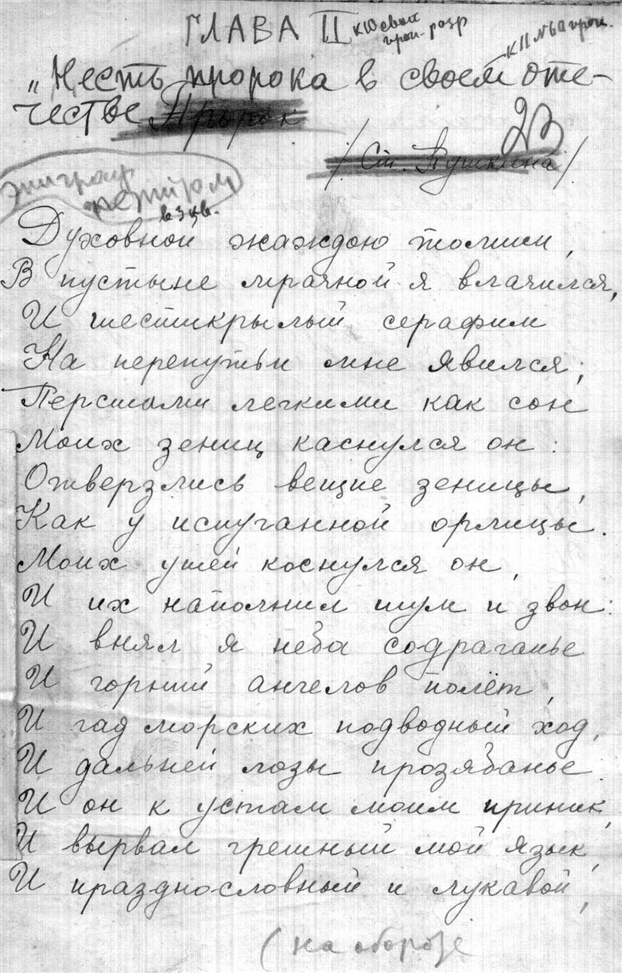 ГЛАВА II
"Несть пророка в своем оте-
честве
/Ст. Пушкина/
эпиграф
петитом
в 3 кв.
Духовной жаждою томим,
В пустыне мрачной я влачился,
И шестикрылый серафим
На перепутьи мне явился;
Перстами легкими как сон
Моих зениц каснулся он:
Отверзлись вещие зеницы,
Как у испуганной орлицы.
Моих ушей коснулся он,
И их наполнил шум и звон:
И внял я неба содраганье
И горний ангелов полёт,
И гад морских подводный ход,
И дальней лозы прозябанье.
И он к устам моим приник,
И вырвал грешный мой язык,
И празднословный и лукавой,
(на обороте